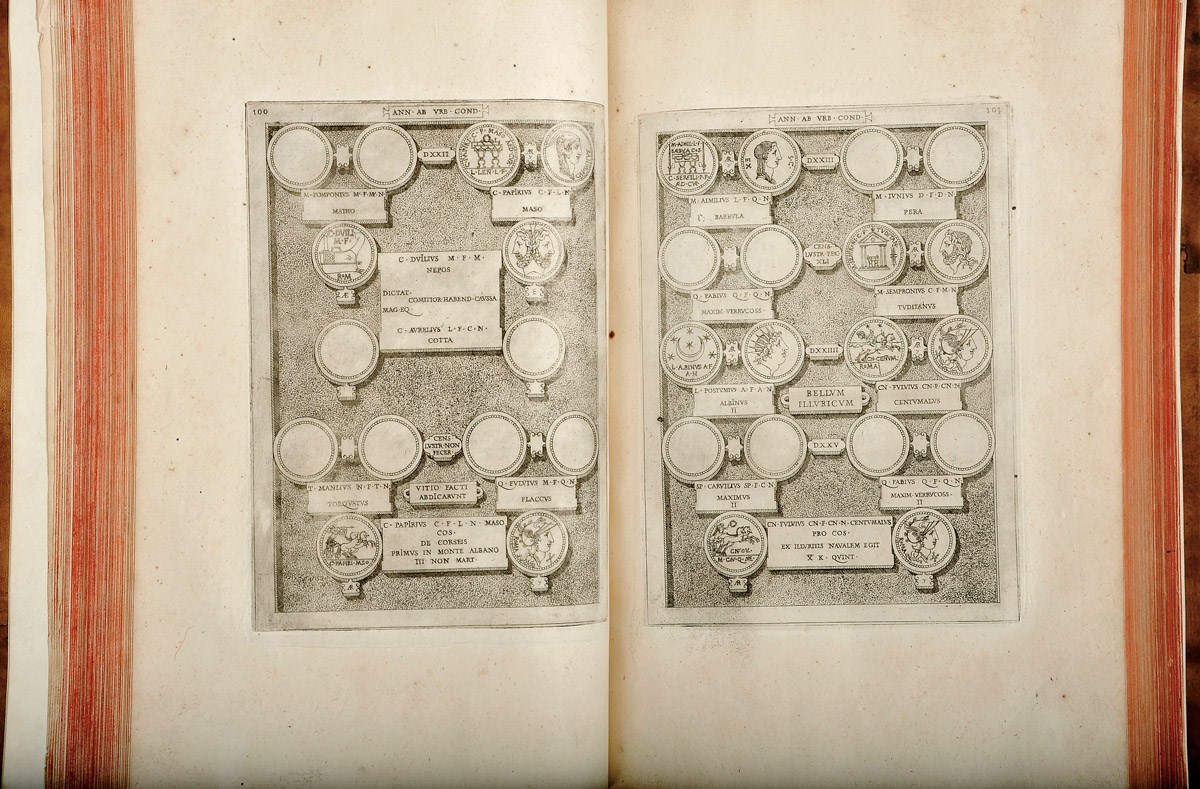 100
ANN · AB · VRB · COND ·
DXXII
L · LEN · L · F ·
M · POMPONIVS M · F · M · N
MATHO
C · PAPIRIVS C · F · L · N
MASO
C · DVILI
M · F ·
ROM
C · DVILIVS M · F · M ·
NEPOS
DICTAT ·
COMITIOR · HABEND · CAVSSA
MAG · EQ ·
C · AVRELIVS L · F · C · N ·
COTTA
Æ
CENS
LVSTR · NON
FECER
T · MANLIVS N · F · T · N ·
TORQVATVS
VITIO FACTI
ABDICARVNT
Q · FVLVIVS M · F · Q · N
FLACCVS
C · PAPIRIVS C · F · L · N · MASO
COS ·
DE · CORSEIS
PRIMVS IN MONTE ALBANO
III NON MART ·
AR
101
ANN · AB · VRB · COND ·
EX
S · C
DXXIII
M · AIMILIVS L · F · Q · N
BARBVLA
M · IVNIVS D · F · D · N
PERA
CENS ·
XLI
Q · FABIVS Q · F · Q · N
MAXIM · VERRVCOSS ·
M · SEMPRONIVS C · F · M · N
TVDITANVS
DXXIIII
ROMA
L · POSTVMIVS A · F · A · N
ALBINVS
II
BELLVM
ILLVRICVM
CN · FVLVIVS CN · F · CN · N
CENTVMALVS
DXXV
SP · CARVILIVS SP · F · C · N
MAXIMVS
II
Q · FABIVS Q · F · Q · N
MAXIM · VERRVCOSS ·
II
CN · FVLVIVS CN · F · CN · N · CENTVMALVS
PRO COS ·
EX ILLVRIIS NAVALEM EGIT
X K · QVINT ·
AR